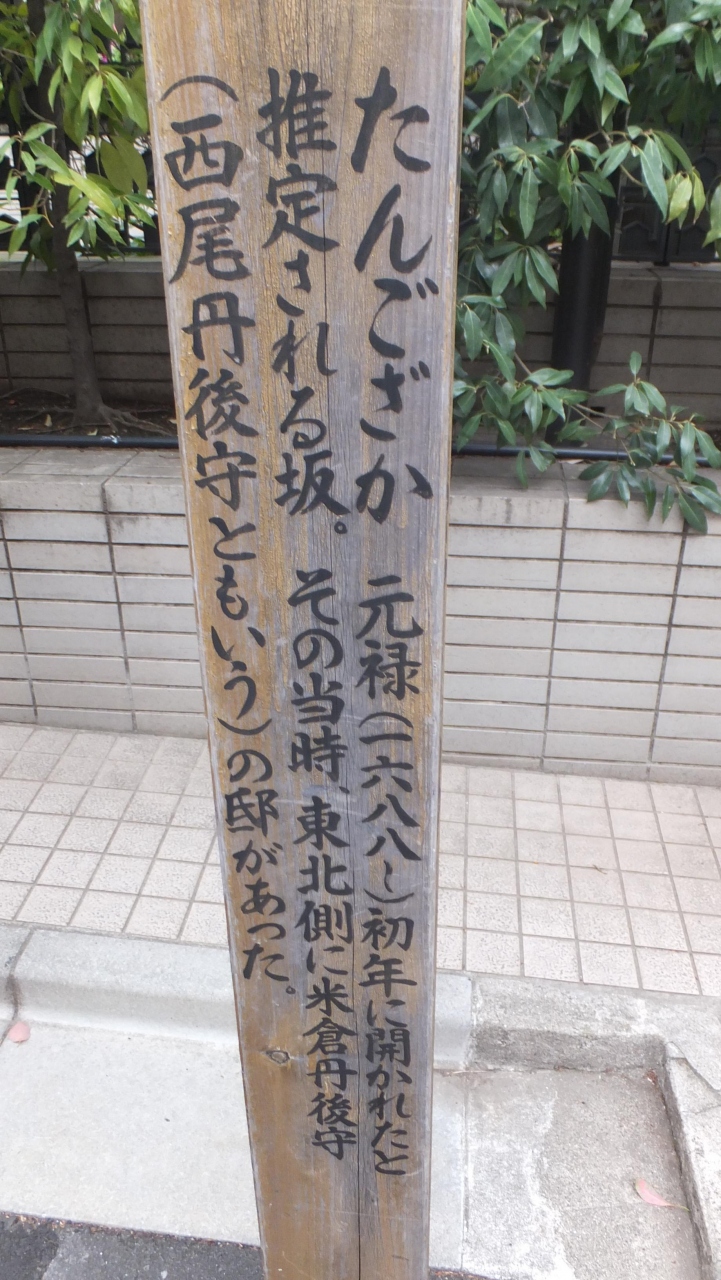 たんござか 元禄（一六八八〜）初年に開かれたと
推定される坂。その当時、東北側に米倉丹後守
（西尾丹後守ともいう）の邸があった。